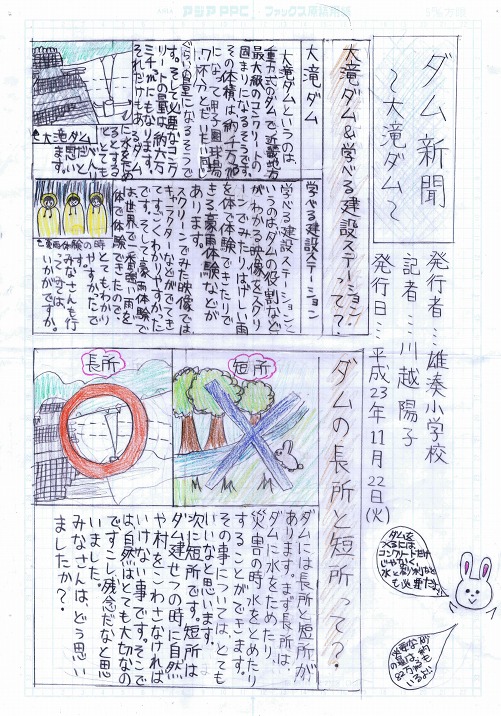 ダム新聞
〜大滝ダム〜
発行者…雄湊小学校
記者…川越陽子
発行日…平成23年11月22日(火)
大滝ダム&学べる建設ステーションって?
大滝ダム
大滝ダムというのは、
重力式のダムで、近畿地方
最大級のコンクリートの
固まりになるそうです。
その体積は、約千万で
になって甲子園球場
7杯分とだいたい同じ
ぐらいの量になるそうで
す。そして必要なコンク
リートの重量は約六万
ミキサーにもなります。
それだけもあるダム
大滝ダム
学べる建設ステーション
学べる建設ステーションと
いうのは、ダムの役割など
がわかる映像をスクリ
ーンでみたり、はげしい雨
を体で体験できたりで
きる豪雨体験などが
あります。
スクリーンでみた映像では
キャラクターなどがでてき
てすごくわかりやすかった
です。そして、豪雨体験で
は世界で一番強い雨を
体で体験できたので、
とてもわかり
やすかったで
す。
みなさんも行
ってみては
いかがですか。
豪雨体験の時
ダムの長所と短所って?
短所
長所
ダムには長所と短所が
あります。まず長所は、
ダムに水をためたり、
災害の時、水をとめたり
することができます。
その事については、とても
いいなと思いました。
次に短所です。短所は
ダム建せつの時に自然
や村をこわさなければ
いけない事です。そこで
は、自然はとても大切なの
で、すこし残念だなと思
いました。
みなさんは、どう思い
ましたか?
ダムを
つくるには
コンクリートだけ
じゃなく、
水と砂利など
も必要だよ。